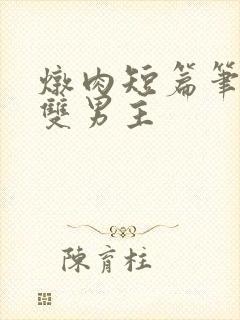 燉肉短篇筆
雙男主
陳育柱